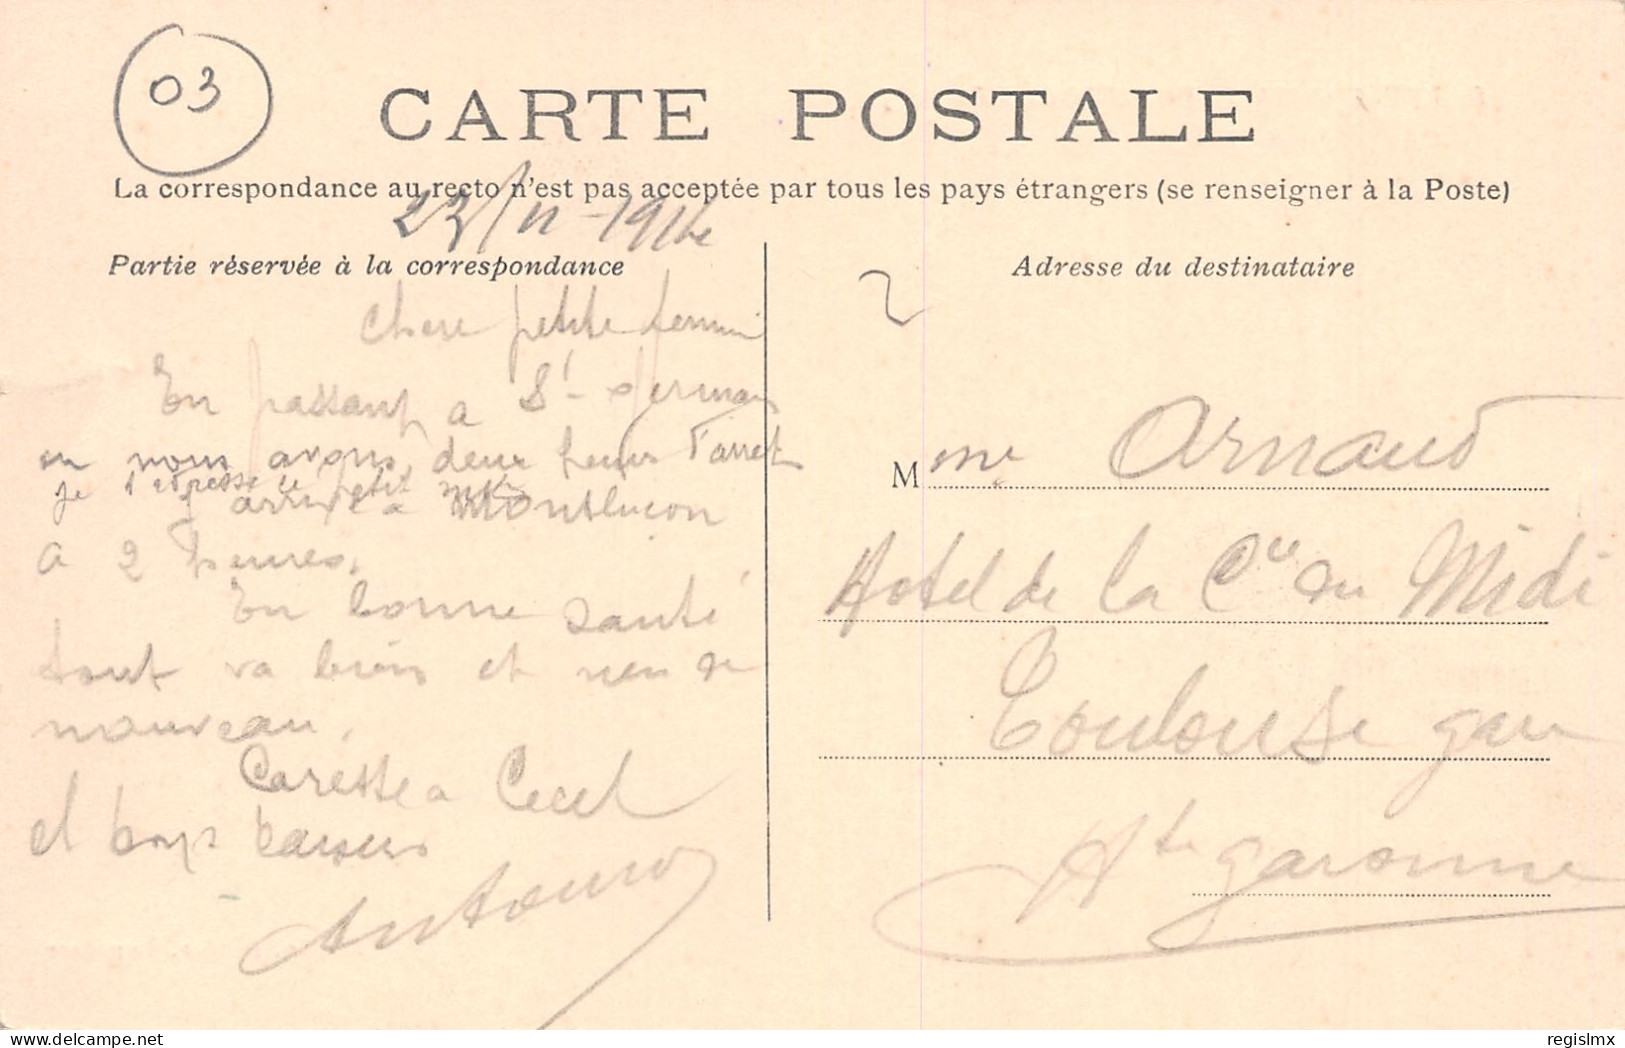 03
CARTE POSTALE
La correspondance au recto n'est pas acceptée par tous les pays étrangers (se renseigner à la Poste)
23/11-1914
Partie réservée à la correspondance
Adresse du destinataire
Chere petite femme
En passant a St-Germain
ou nous avons deux heures d'arret
je t'adresse ce petit
arrivé a Montlucon
a 2 heures.
En bonne santé
tout va bien et rien de
nouveau.
Caresse a Cecel
et bons baisers
Antonin
Mme Arnaud
Hotel de la Cie du Midi
Toulouse gare
Hte garonne
regislmx